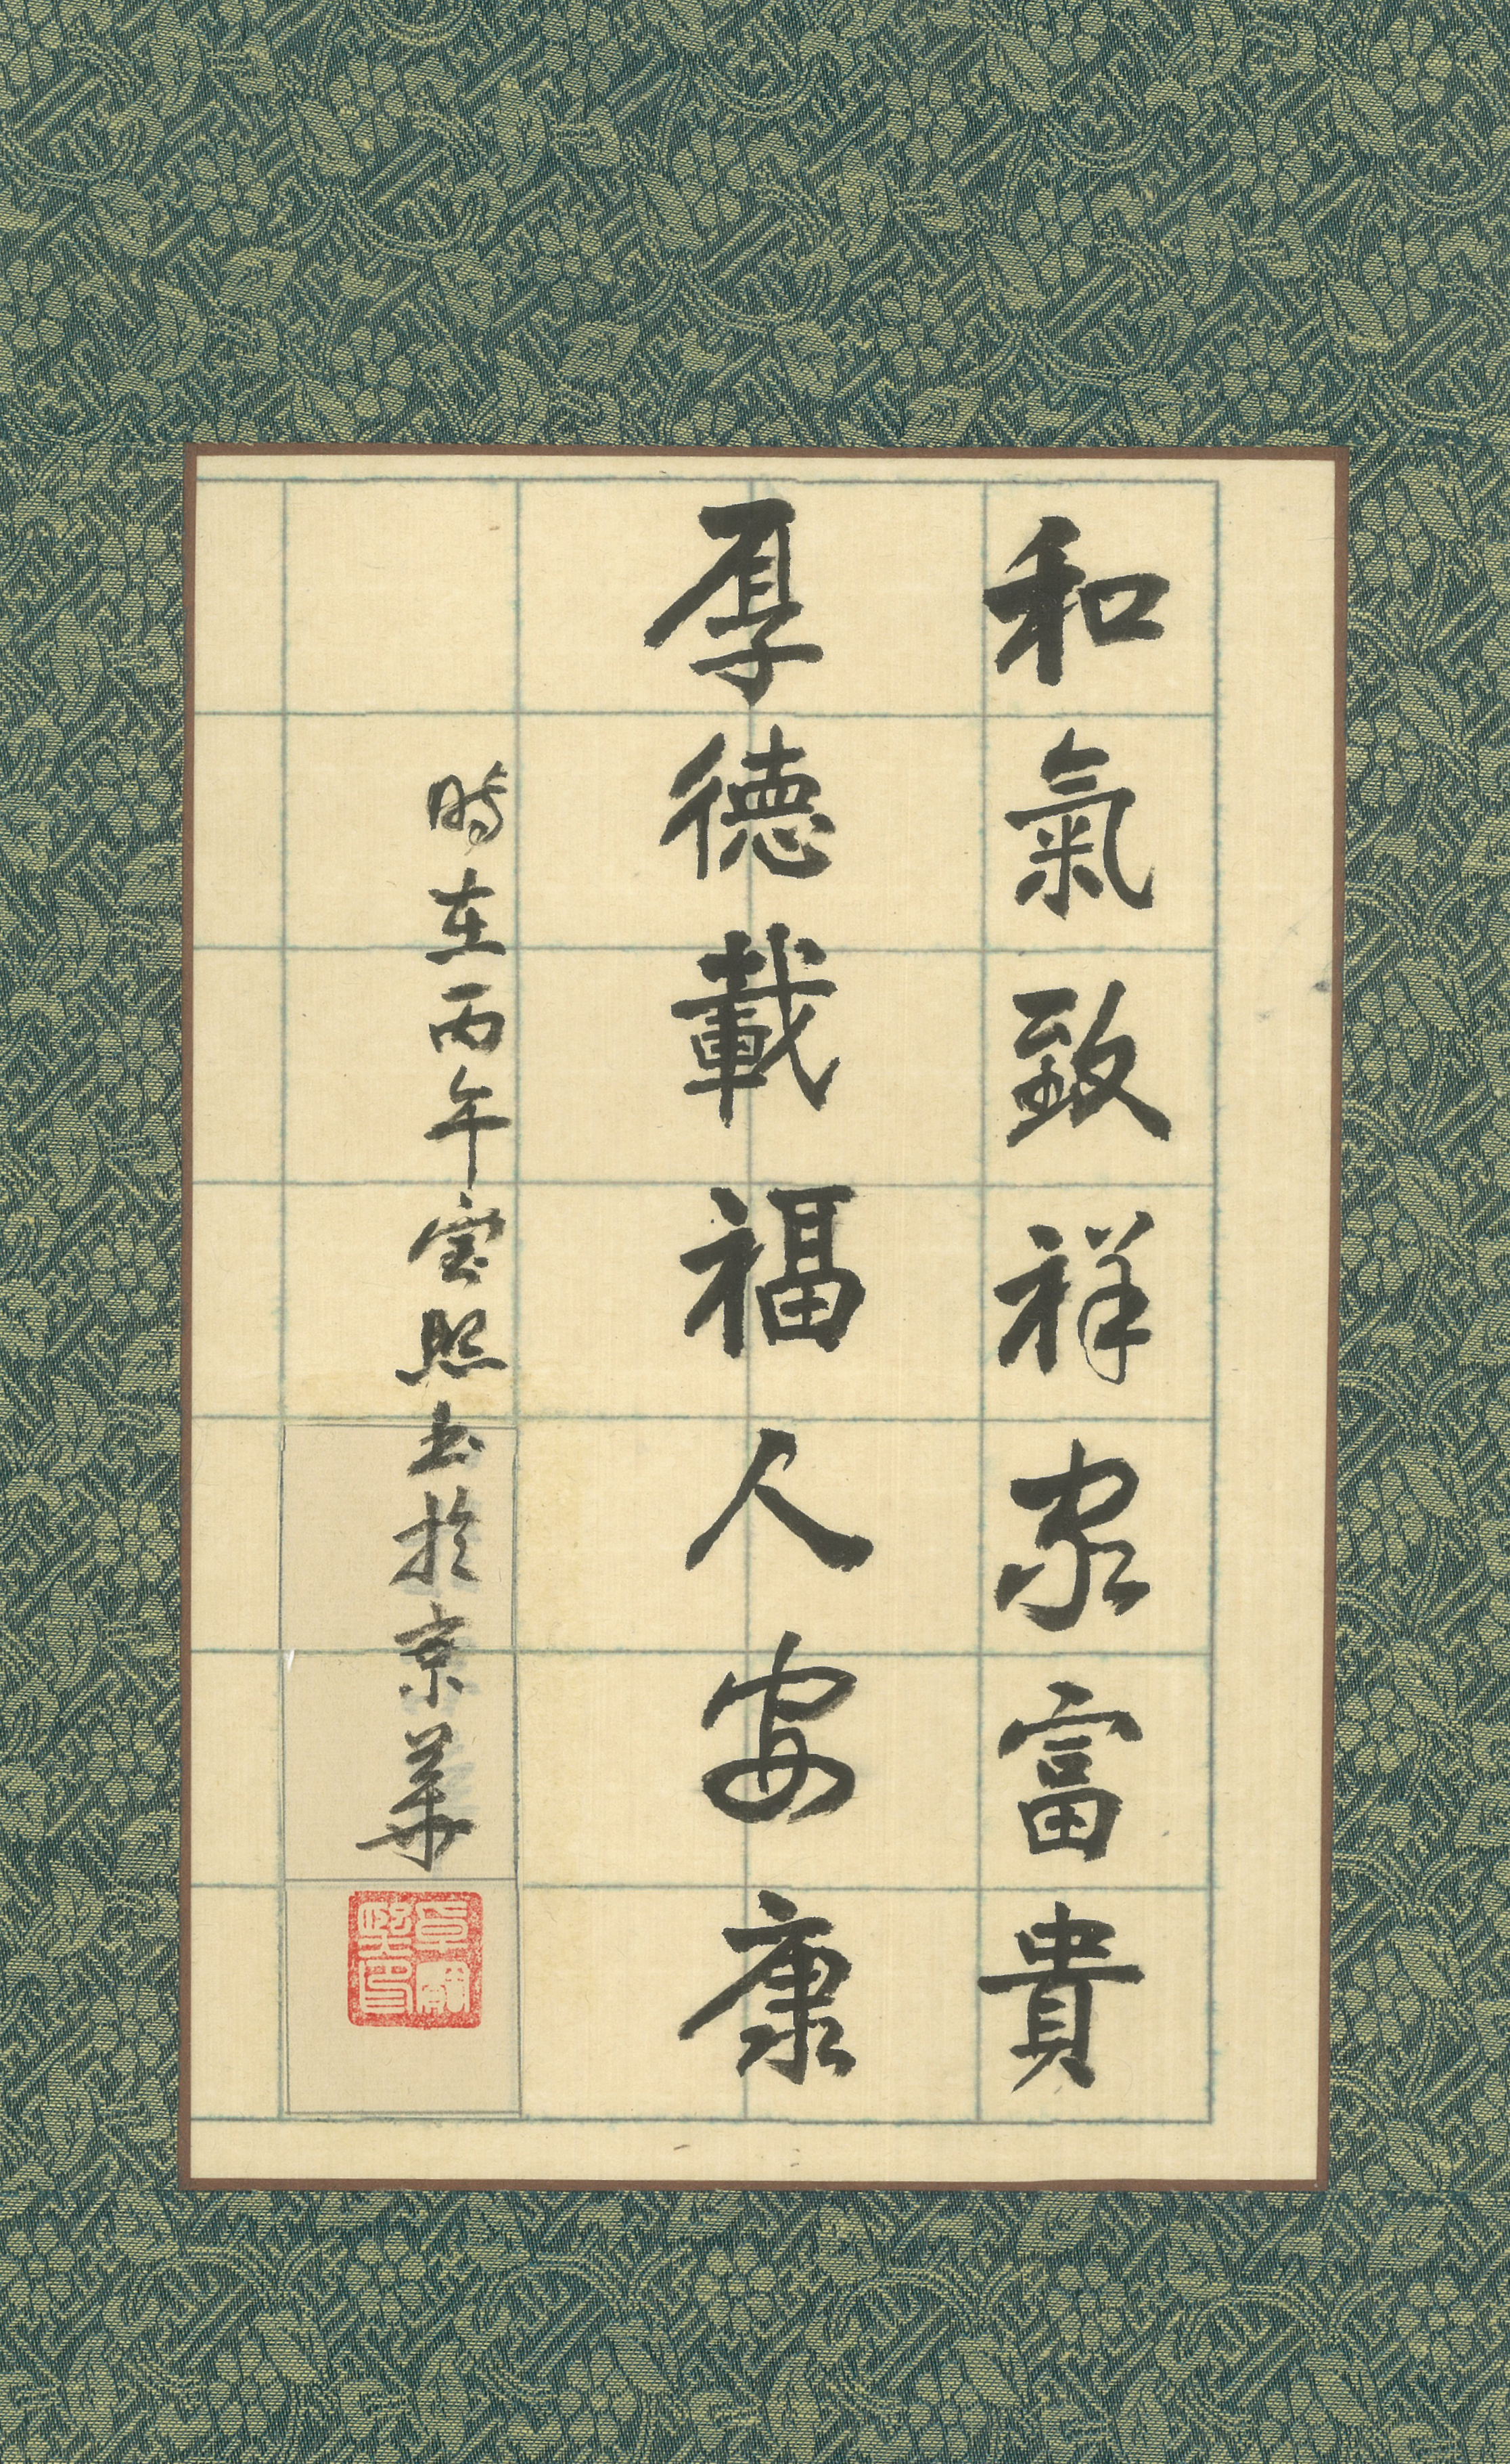 和氣致祥家富貴
厚德載福人安康
時在丙午宝熙书於京華